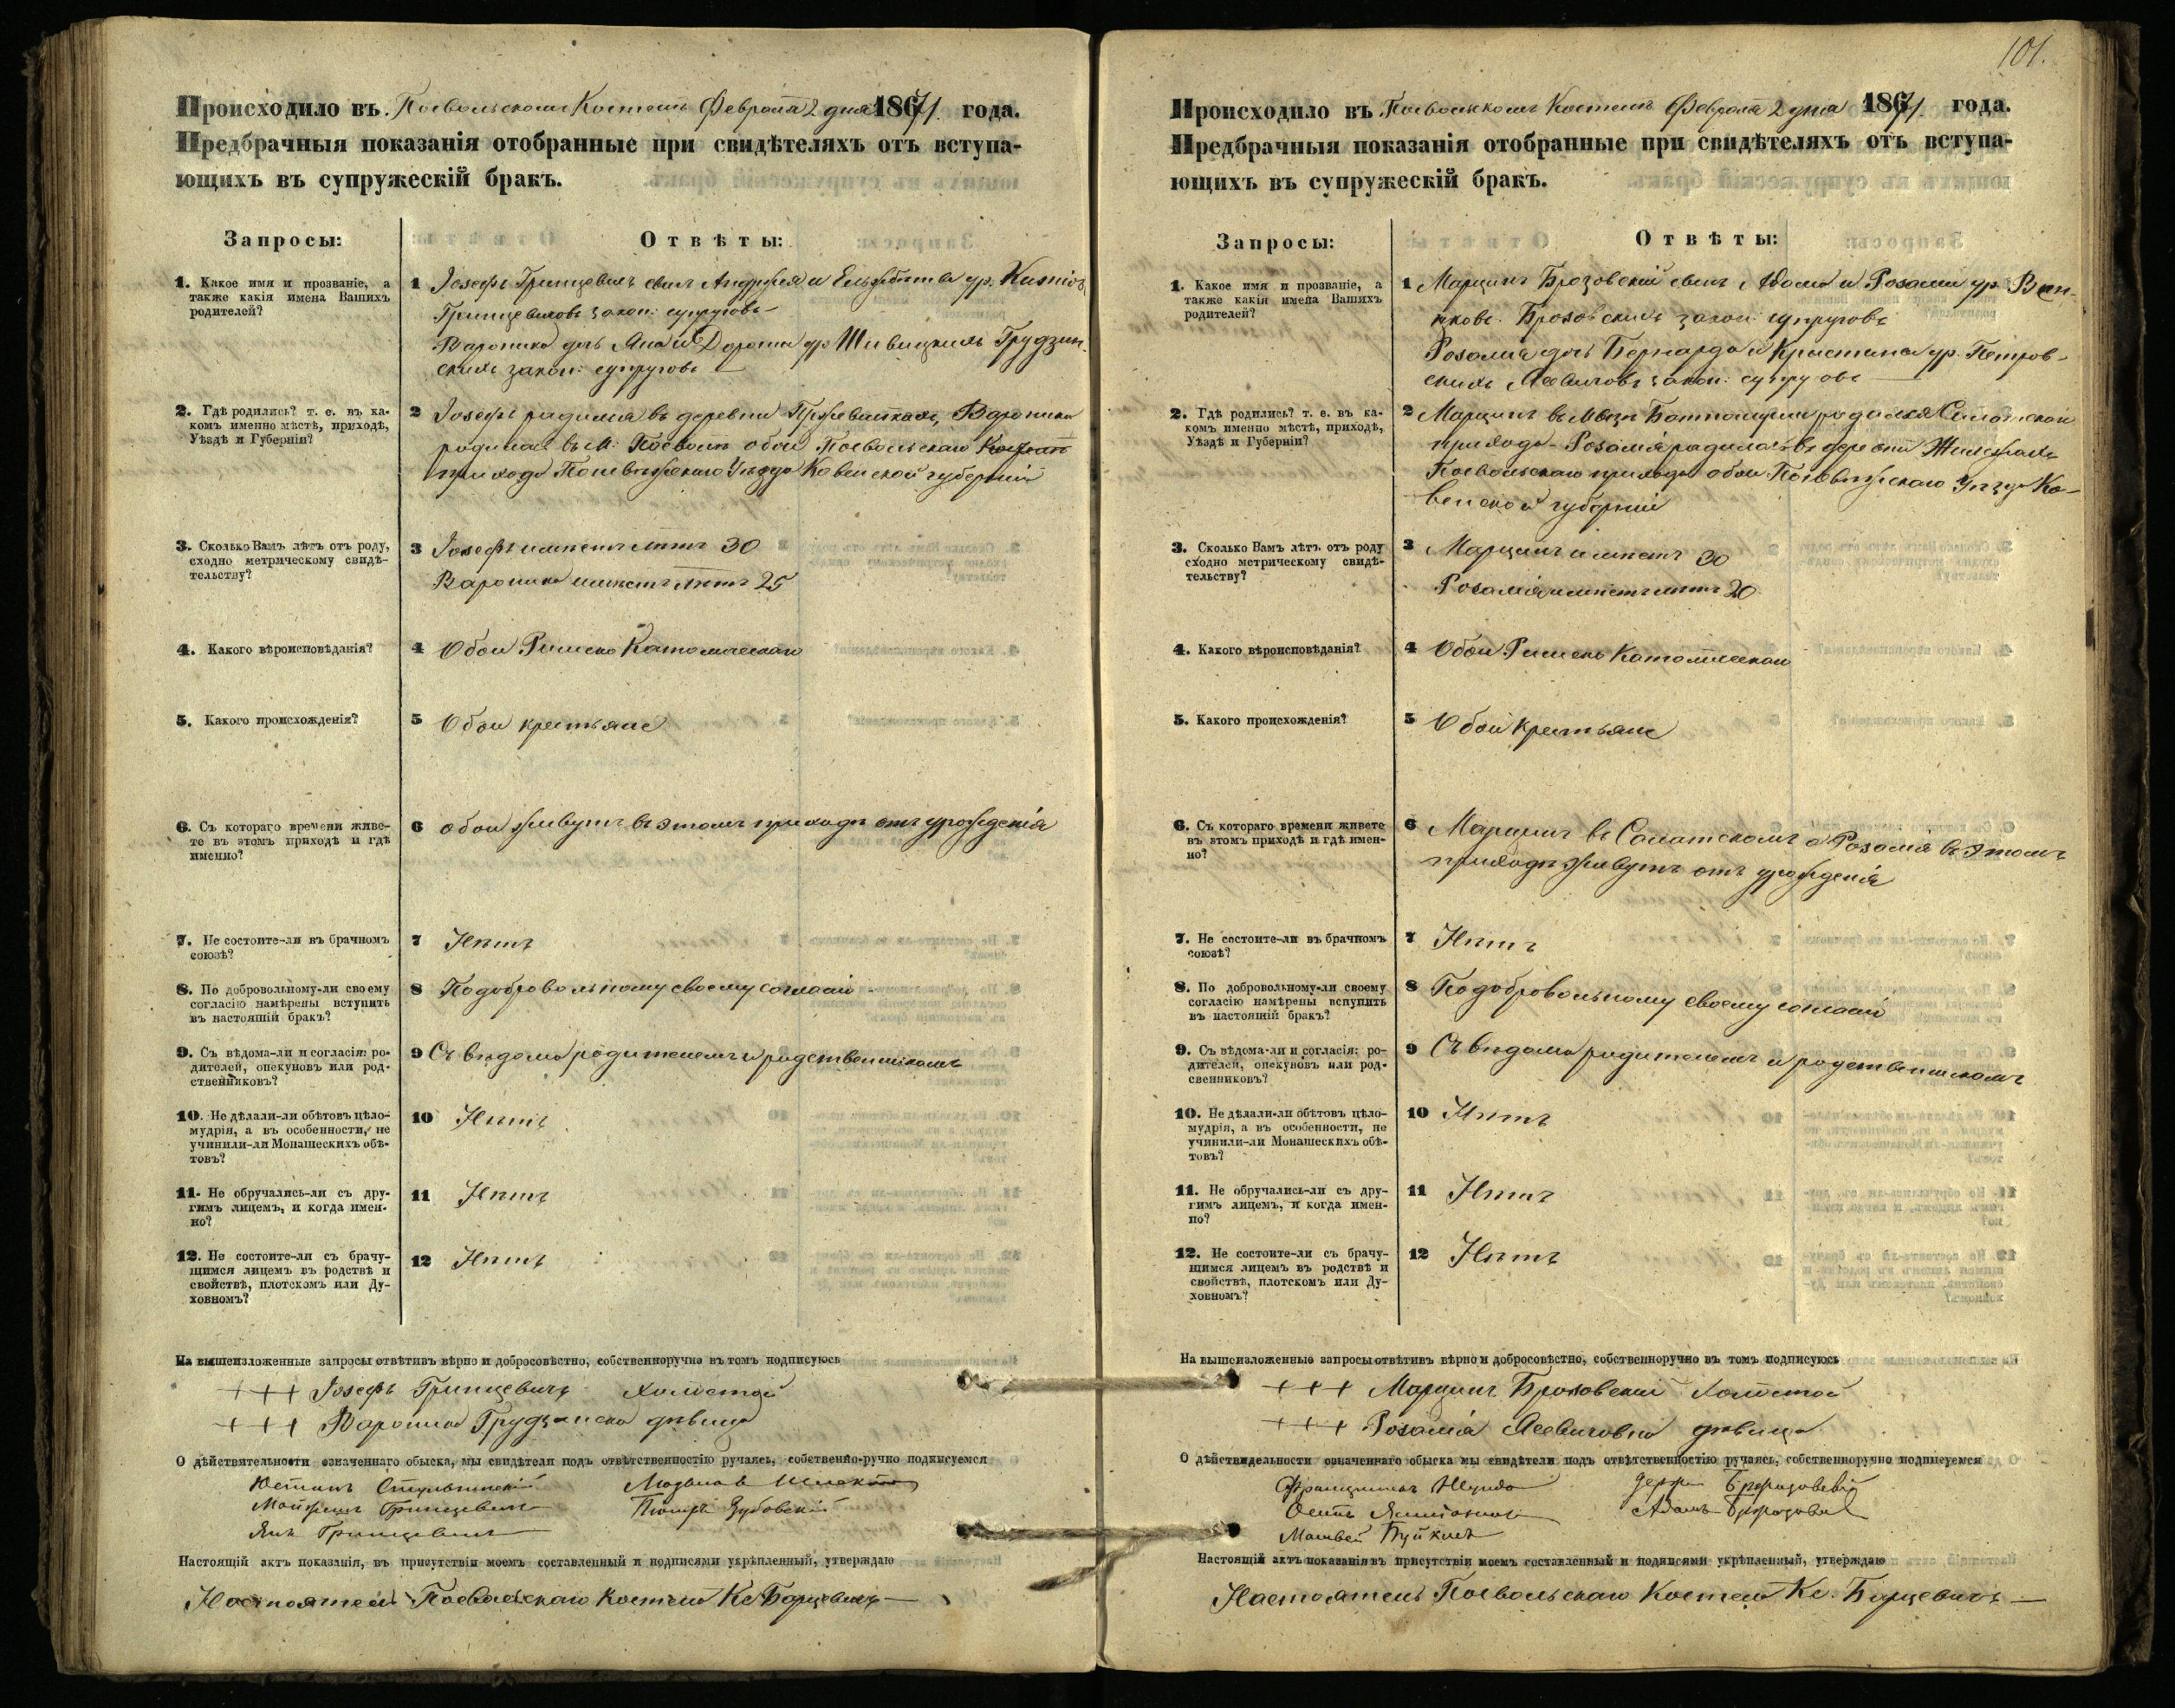 Происходило въ Посвольскомъ Костелѣ Февраля 2 дня 1871 года.
Предбрачныя показанія отобранные при свидѣтеляхъ отъ вступа-
ющихъ въ супружескій бракъ.
Запросы:
Отвѣты:
1. Какое имя и прозваніе, а
также какія имена Вашихъ
родителей?
1 Іосефъ Гринцевичъ сынъ Андржея и Ельжбиты ур.
Гринцевичовъ закон: супруговъ
Вароника дочь Яна и Дороты ур. Шивицкихъ Грудзин-
скихъ закон: супруговъ
2. Гдѣ родились? т. е. въ ка-
комъ именно мѣстѣ, приходѣ,
Уѣздѣ и Губерніи?
2 Іосефъ родился въ деревни Вароника
родилась въ М. Посволѣ обои Посвольскаго
прихода Поневѣжскаго Уѣзда Ковенской губерніи
3. Сколько Вамъ лѣтъ отъ роду,
сходно метрическому свидѣ-
тельству?
3 Іосефъ имѣетъ лѣтъ 30
Вароника имѣетъ лѣтъ 25
4. Какого вѣроисповѣданія?
4 Обои Римско Католическаго
5. Какого происхожденія?
5 Обои крестьяне
6. Съ котораго времени живе-
те въ этомъ приходѣ и гдѣ
именно?
6 Обои живутъ въ этомъ приходѣ отъ урожденія
7. Не состоите-ли въ брачномъ
союзѣ?
7 Нѣтъ
8. По добровольному-ли своему
согласію намѣрены вступить
въ настоящій бракъ?
8 По добровольному своему согласіи
9. Съ вѣдома-ли и согласія: ро-
дителей, опекуновъ или род-
ственниковъ?
9 Съ вѣдома родителемъ и родственникомъ
10. Не дѣлали-ли обѣтовъ цѣло-
мудрія, а въ особенности, не
учинили-ли Монашескихъ обѣ-
товъ?
10 Нѣтъ
11. Не обручались-ли съ дру-
гимъ лицемъ, и когда имен-
но?
11 Нѣтъ
12. Не состоите-ли съ брачу-
щимся лицемъ въ родствѣ и
свойствѣ, плотскомъ или Ду-
ховномъ?
12 Нѣтъ
На вышеизложенные запросы отвѣтивъ вѣрно и добросовѣстно, собственноручно въ томъ подписуюсь
+++ Іосефъ Гринцевичъ холостой
+++ Вароника Грудзинска дѣвица
О дѣйствительности означеннаго обыска, мы свидѣтели подъ отвѣтственностію ручаясь, собственно-ручно подписуемся
Юстинъ
Гринцевичъ Піотръ Зубовскій
Янъ Гринцевичъ
Настоящій актъ показанія, въ присутствіи моемъ составленный и подписями укрѣпленный, утверждаю
Настоятель Посвольскаго Костела Кс Барцевичъ
101.
Происходило въ Посвольскомъ Костелѣ Февраля 2 дня 1871 года.
Предбрачныя показанія отобранные при свидѣтеляхъ отъ вступа-
ющихъ въ супружескій бракъ.
Запросы:
Отвѣты:
1. Какое имя и прозваніе, а
также какія имена Вашихъ
родителей?
1 Марцинъ Брозовскій сынъ Адама и Розаліи ур.
Брозовскихъ закон: супруговъ
Розалія дочь Бернарда и Кристины ур. Петров-
скихъ закон: супруговъ
2. Гдѣ родились? т. е. въ ка-
комъ именно мѣстѣ, приходѣ,
Уѣздѣ и Губерніи?
2 Марцинъ въ родился Салатскаго
прихода Розалія родилась въ деревни
Посвольскаго прихода обои Поневѣжскаго Уѣзда Ко-
венской губерніи
3. Сколько Вамъ лѣтъ отъ роду
сходно метрическому свидѣ-
тельству?
3 Марцинъ имѣетъ 30
Розалія имѣетъ лѣтъ 20
4. Какого вѣроисповѣданія?
4 Обои Римско Католическаго
5. Какого происхожденія?
5 Обои крестьяне
6. Съ котораго времени живете
въ этомъ приходѣ и гдѣ имен-
но?
6 Марцинъ въ Салатскомъ а Розалія въ этомъ
приходѣ живутъ отъ урожденія
7. Не состоите-ли въ брачномъ
союзѣ?
7 Нѣтъ
8. По добровольному-ли своему
согласію намѣрены вспупить
въ настоящій бракъ?
8 По добровольному своему согласіи
9. Съ вѣдома-ли и согласія: ро-
дителей, опекуновъ или род-
свенниковъ?
9 Съ вѣдома родителемъ и родственникомъ
10. Не дѣлали-ли обѣтовъ цѣло-
мудрія, а въ особенности, не
учинили-ли Монашескихъ обѣ-
товъ?
10 Нѣтъ
11. Не обручались-ли съ дру-
гимъ лицемъ, и когда имен-
но?
11 Нѣтъ
12. Не состоите-ли съ брачу-
щимся лицемъ въ родствѣ и
свойствѣ, плотскомъ или Ду-
ховномъ?
12 Нѣтъ
На вышеизложенные запросы отвѣтивъ вѣрно и добросовѣстно, собственноручно въ томъ подписуюсь
+++ Марцинъ Брозовскій холостой
+++ Розалія дѣвица
О дѣйствидельности означеннаго обыска мы свидѣтели подъ отвѣтственностію ручаясь, собственноручно подписуемся
Францишекъ
Осипъ Адамъ
Матвей
Настоящій актъ показанія въ присутствіи моемъ составленный и подписями укрѣпленный, утверждаю
Настоятель Посвольскаго Костела Кс. Барцевичъ